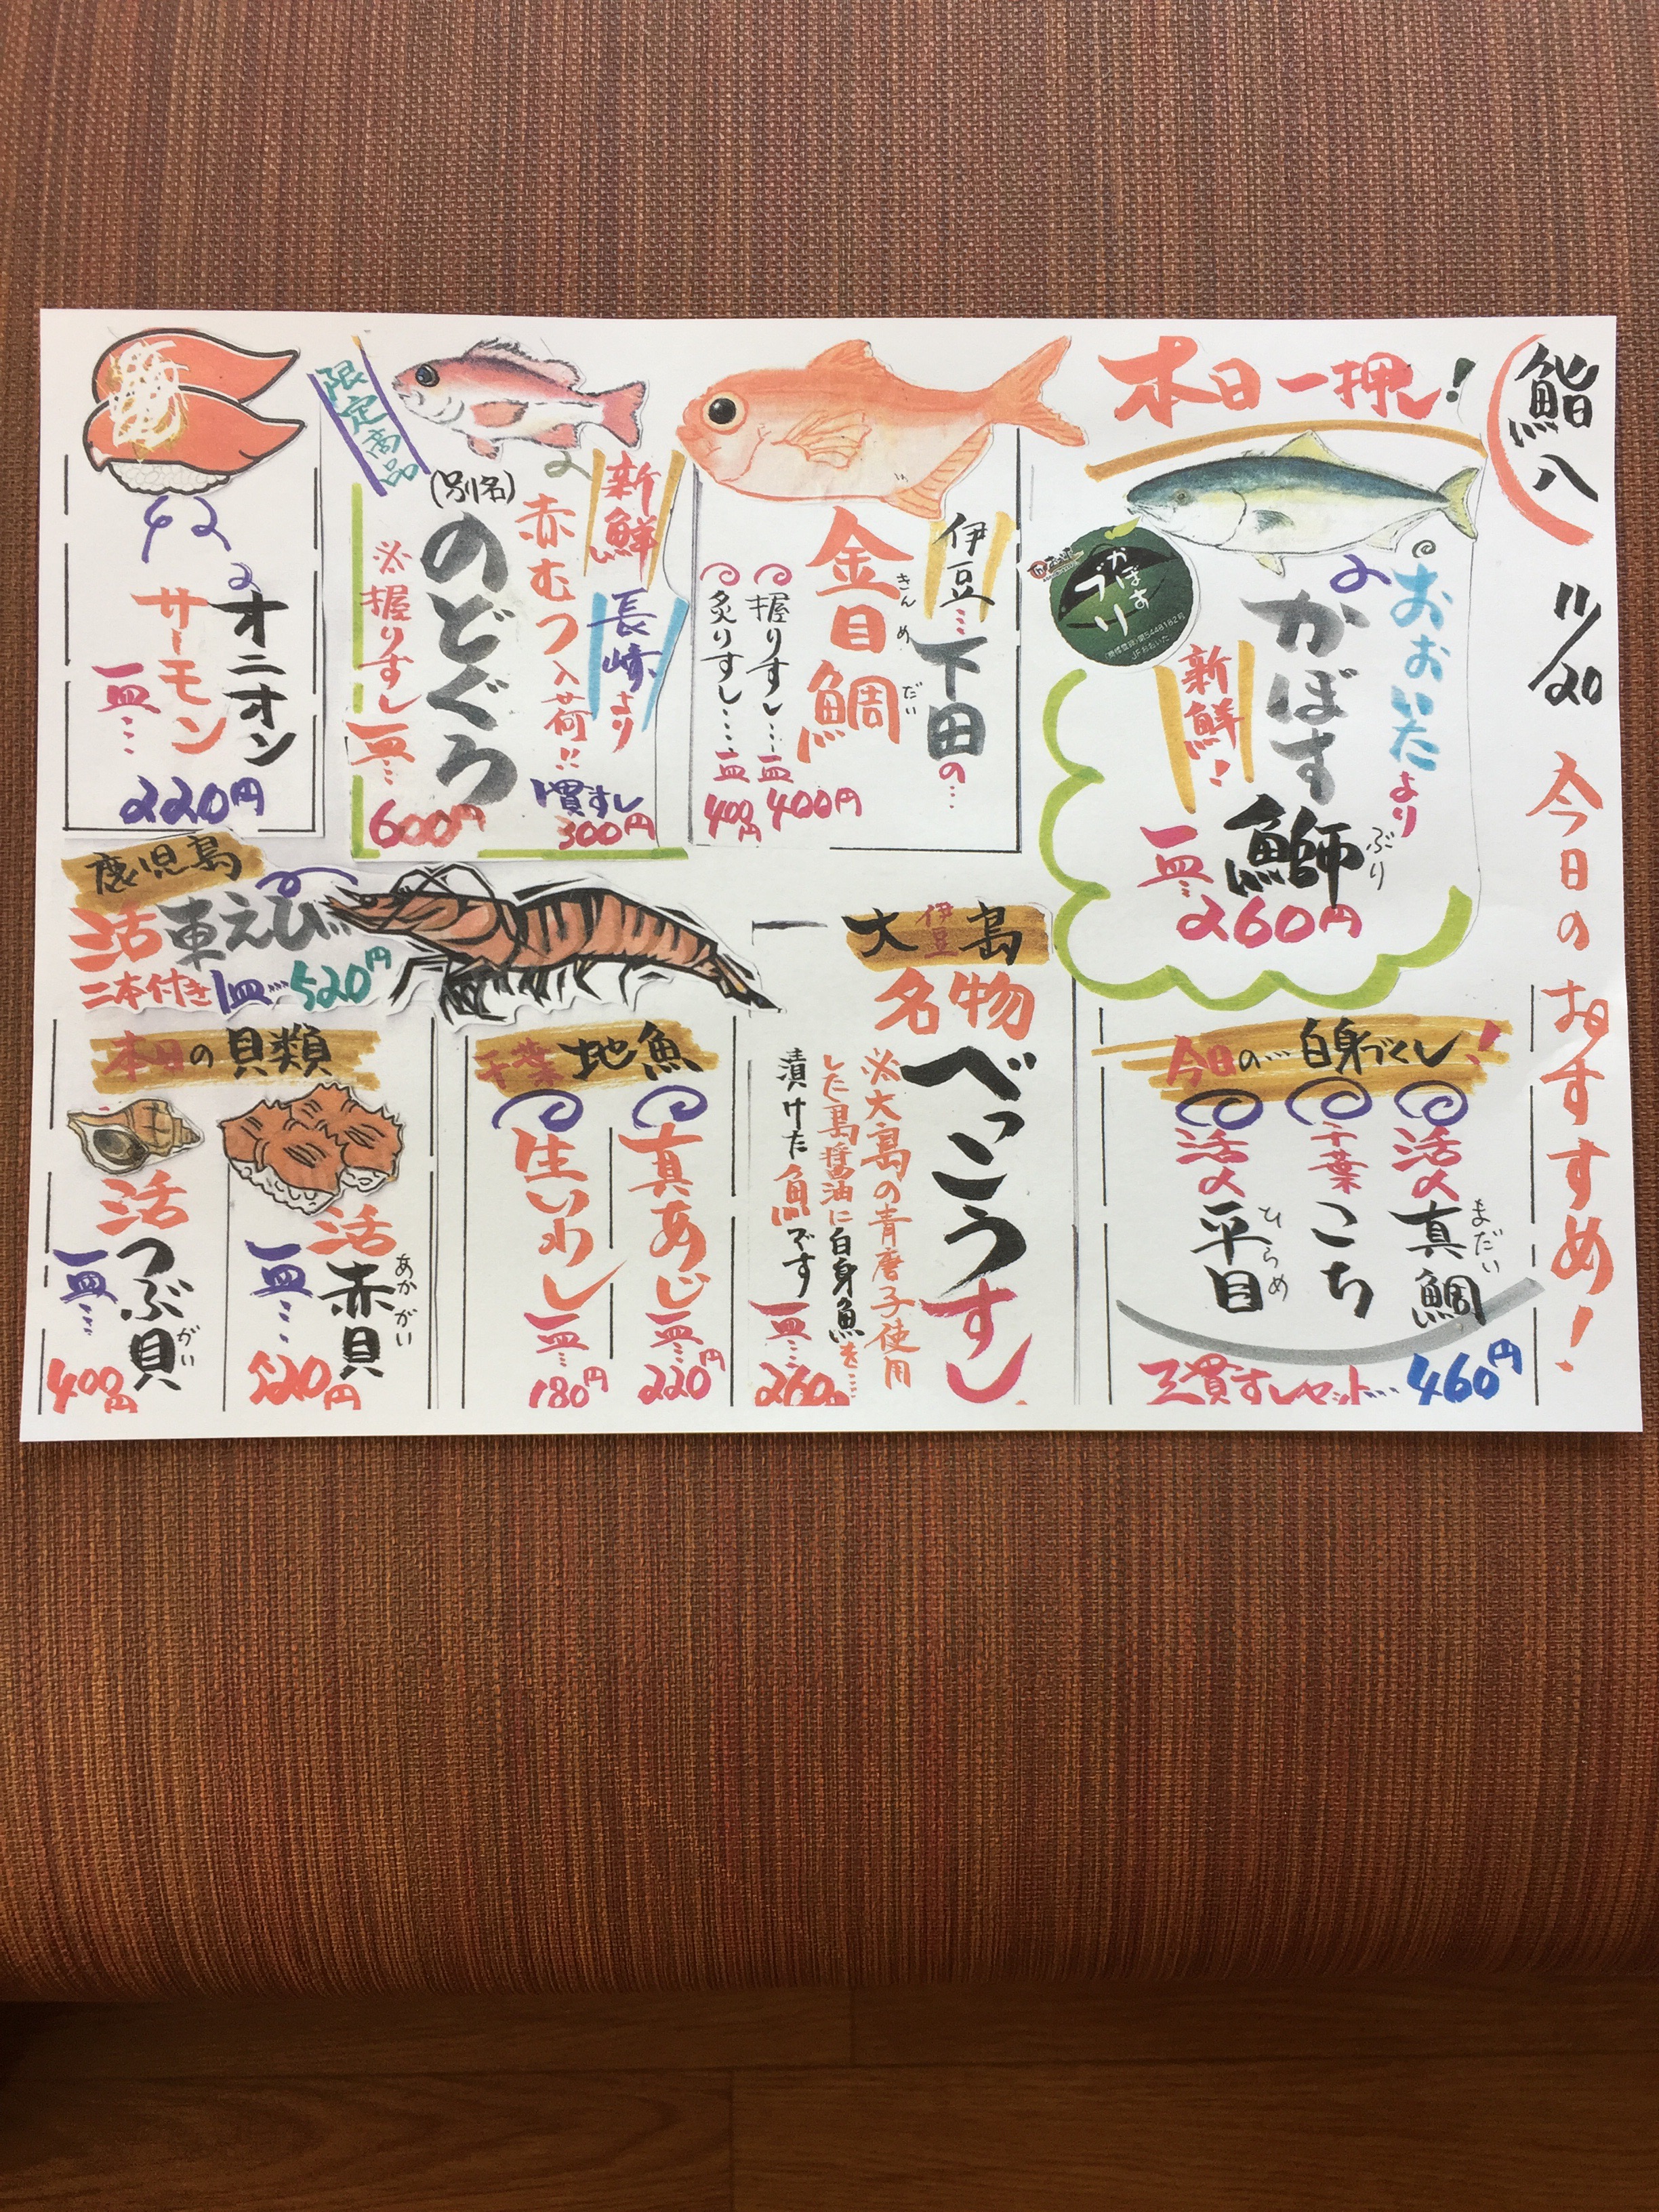 鮨八
11/20
今日のおすすめ!
本日一押し!
おおいたより
かぼす
鰤
ぶり
新鮮!
一皿…
260円
かぼす
ブリ
JFおおいた
伊豆…
下田の…
金目鯛
きんめだい
握りすし…一皿400円
炙りすし…一皿400円
限定商品
新鮮
長崎より
赤むつ入荷!!
(別名)
のどぐろ
1貫すし
300円
※握りすし一皿…
600円
オニオン
サーモン
一皿…
220円
今日の…白身づくし!
活〆真鯛
まだい
千葉こち
活〆平目
ひらめ
三貫すしセット…460円
伊豆大島
名物
べっこうすし
※大島の青唐子使用
した島醤油に白身魚を…
漬けた魚です
一皿…
260円
鹿児島
活車えび
二本付き1皿…520円
千葉地魚
真あじ
一皿…
220円
生いわし
一皿…
180円
本日の貝類
活赤貝
あかがい
一皿…
520円
活つぶ貝
がい
一皿…
400円